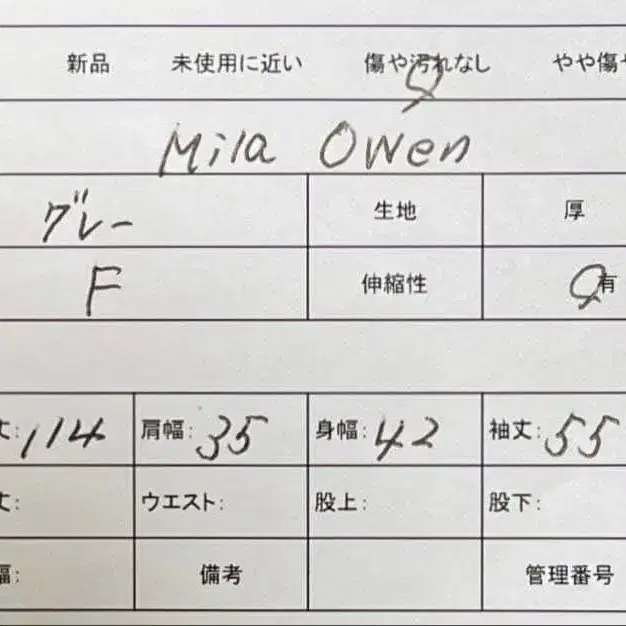 新品 未使用に近い 傷や汚れなし やや傷や
Mila Owen
グレー 生地 厚
F 伸縮性 有
丈: 114 肩幅: 35 身幅: 42 袖丈: 55
丈: ウエスト: 股上: 股下:
幅: 備考 管理番号